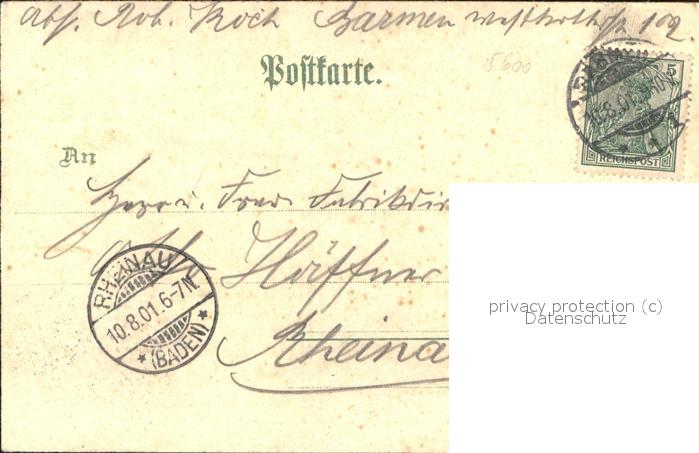 Abs. Rob. Koch Barmen 102.
Postkarte.
5600
5
REICHSPOST
An
Herrn u. Frau Fabrikdir
Höffner
RHEINAU
10.8.01.6-7N.
(BADEN)
Rheina
privacy protection (c)
Datenschutz